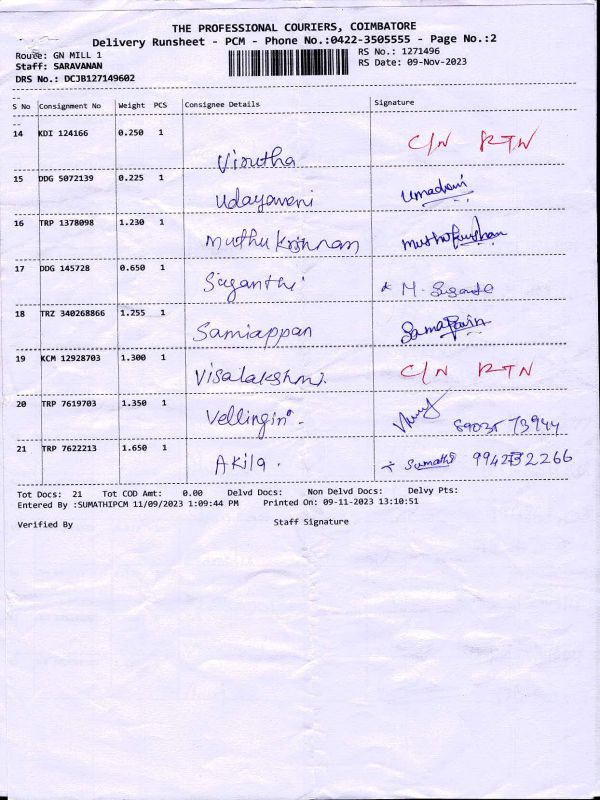 THE PROFESSIONAL COURIERS, COIMBATORE
Delivery Runsheet - PCM - Phone No.:0422-3505555 - Page No.:2
Route: GN MILL 1 RS No.: 1271496
Staff: SARAVANAN RS Date: 09-Nov-2023
DRS No.: DCJB127149602
S No Consignment No Weight PCS Consignee Details Signature
14 KDI 124166 0.250 1 Virutha C/N RTN
15 DDG 5072139 0.225 1 Udayaveni
16 TRP 1378098 1.230 1 Muthu Krishnan
17 DDG 145728 0.650 1 Suganthi
18 TRZ 340268866 1.255 1 Samiappan
19 KCM 12928703 1.300 1 Visalakshmi. C/N RTN
20 TRP 7619703 1.350 1 Vellingiri - 89035 73944
21 TRP 7622213 1.650 1 Akila. Sumathi
Tot Docs: 21 Tot COD Amt: 0.00 Delvd Docs: Non Delvd Docs: Delvy Pts:
Entered By :SUMATHIPCM 11/09/2023 1:09:44 PM Printed On: 09-11-2023 13:10:51
Verified By Staff Signature